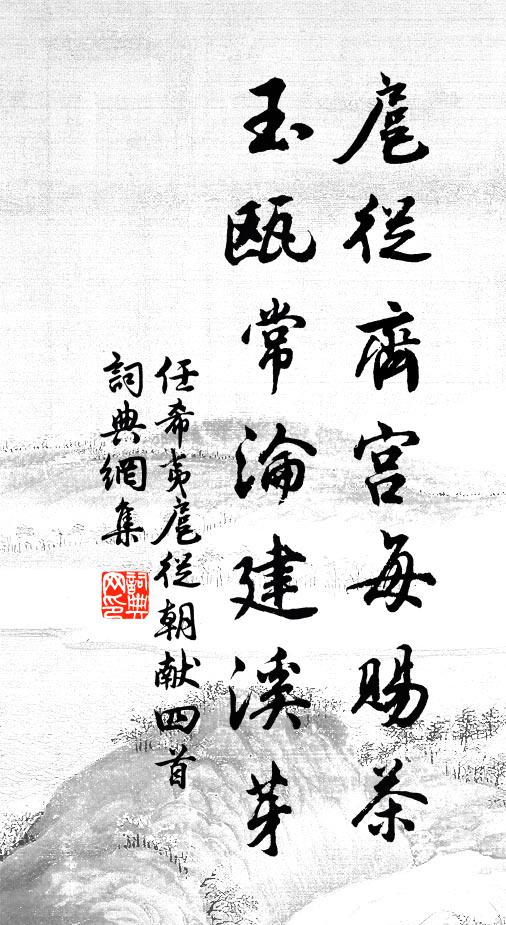 扈從齋宮每賜茶
玉甌常淪建溪芽
任希夷扈從朝献四首
詞典網集
詞典网印